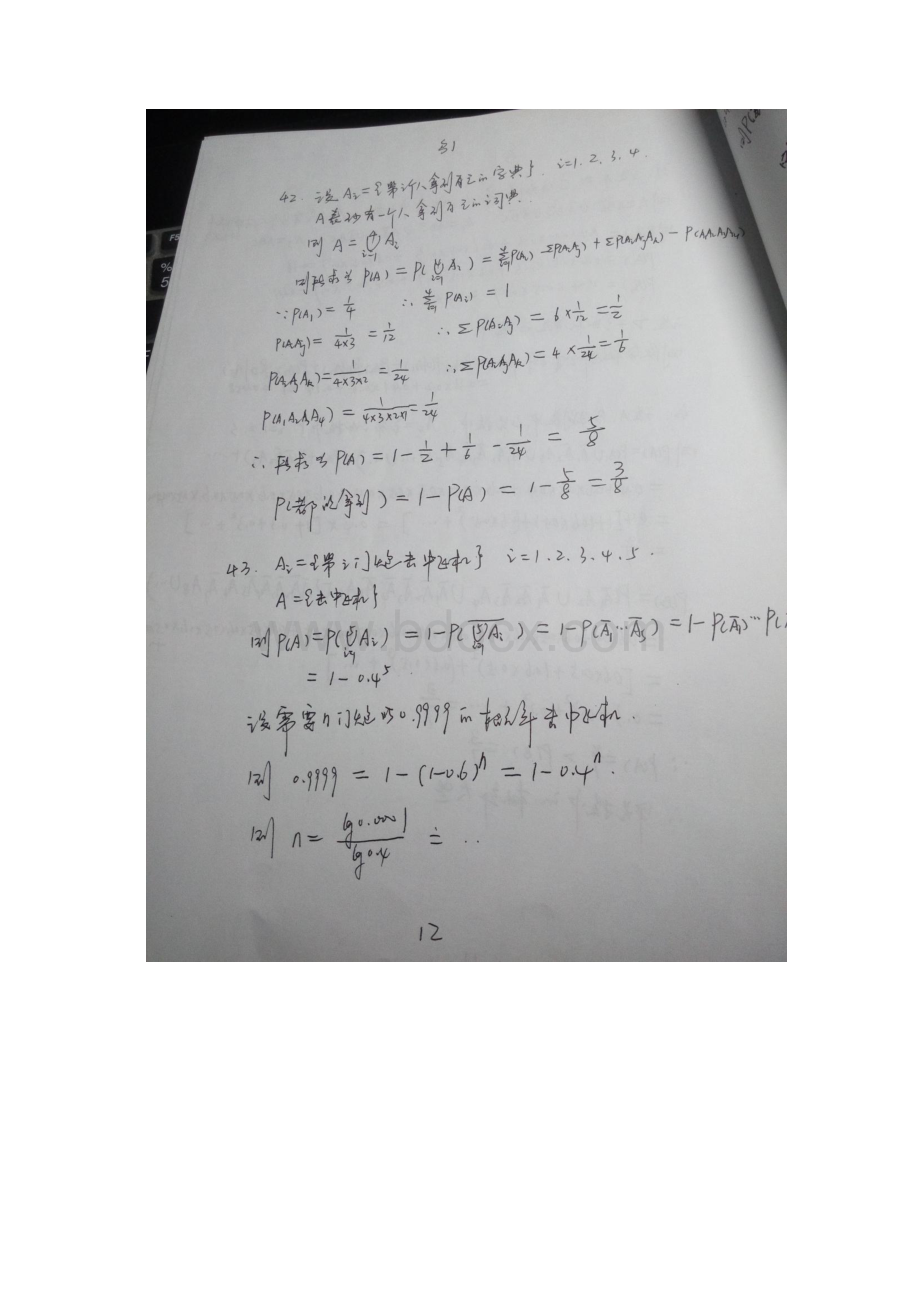 42. 设 Ai={第i个人拿到自己的字典}. i=1.2.3.4.
A表示至少有一个人拿到自己的词典.
则 A=⋃(i=1→4) Ai
则所求为 P(A)=P(⋃(i=1→4) Ai)=∑(i=1→4)P(Ai)-ΣP(AiAj)+ΣP(AiAjAk)-P(A1A2A3A4)
∵P(A1)=1/4 ∴∑(i=1→4)P(Ai)=1
P(AiAj)=1/(4×3)=1/12 ∴ΣP(AiAj)=6×1/12=1/2
P(AiAjAk)=1/(4×3×2)=1/24 ∴ΣP(AiAjAk)=4×1/24=1/6
P(A1A2A3A4)=1/(4×3×2×1)=1/24
∴所求为 P(A)=1-1/2+1/6-1/24=5/8
P(都没拿到)=1-P(A)=1-5/8=3/8
43. Ai={第i门炮击中飞机} i=1.2.3.4.5.
A={击中飞机}
则P(A)=P(⋃(i=1→5) Ai)=1-P(\overline{⋃(i=1→5) Ai})=1-P(Ā1…Ā5)=1-P(Ā1)…P(
=1-0.4^5
设需要n门炮以0.9999的概率击中飞机.
则 0.9999=1-(1-0.6)^n=1-0.4^n.
则 n=lg0.0001/lg0.4≐..
12
F5
%
5